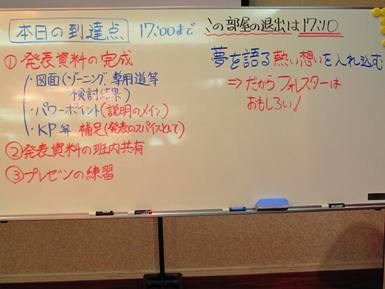 本日の到達点 17:00まで
①発表資料の完成
・図面(ゾーニング、専用道等
検討結果)
・パワーポイント(説明のメイン)
・KP等 補足(発表のスパイスとして)
②発表資料の班内共有
③プレゼンの練習
この部屋の退出は17:10
夢を語る熱い想いを入れ込む
⇒だからフォレスターは
おもしろい!